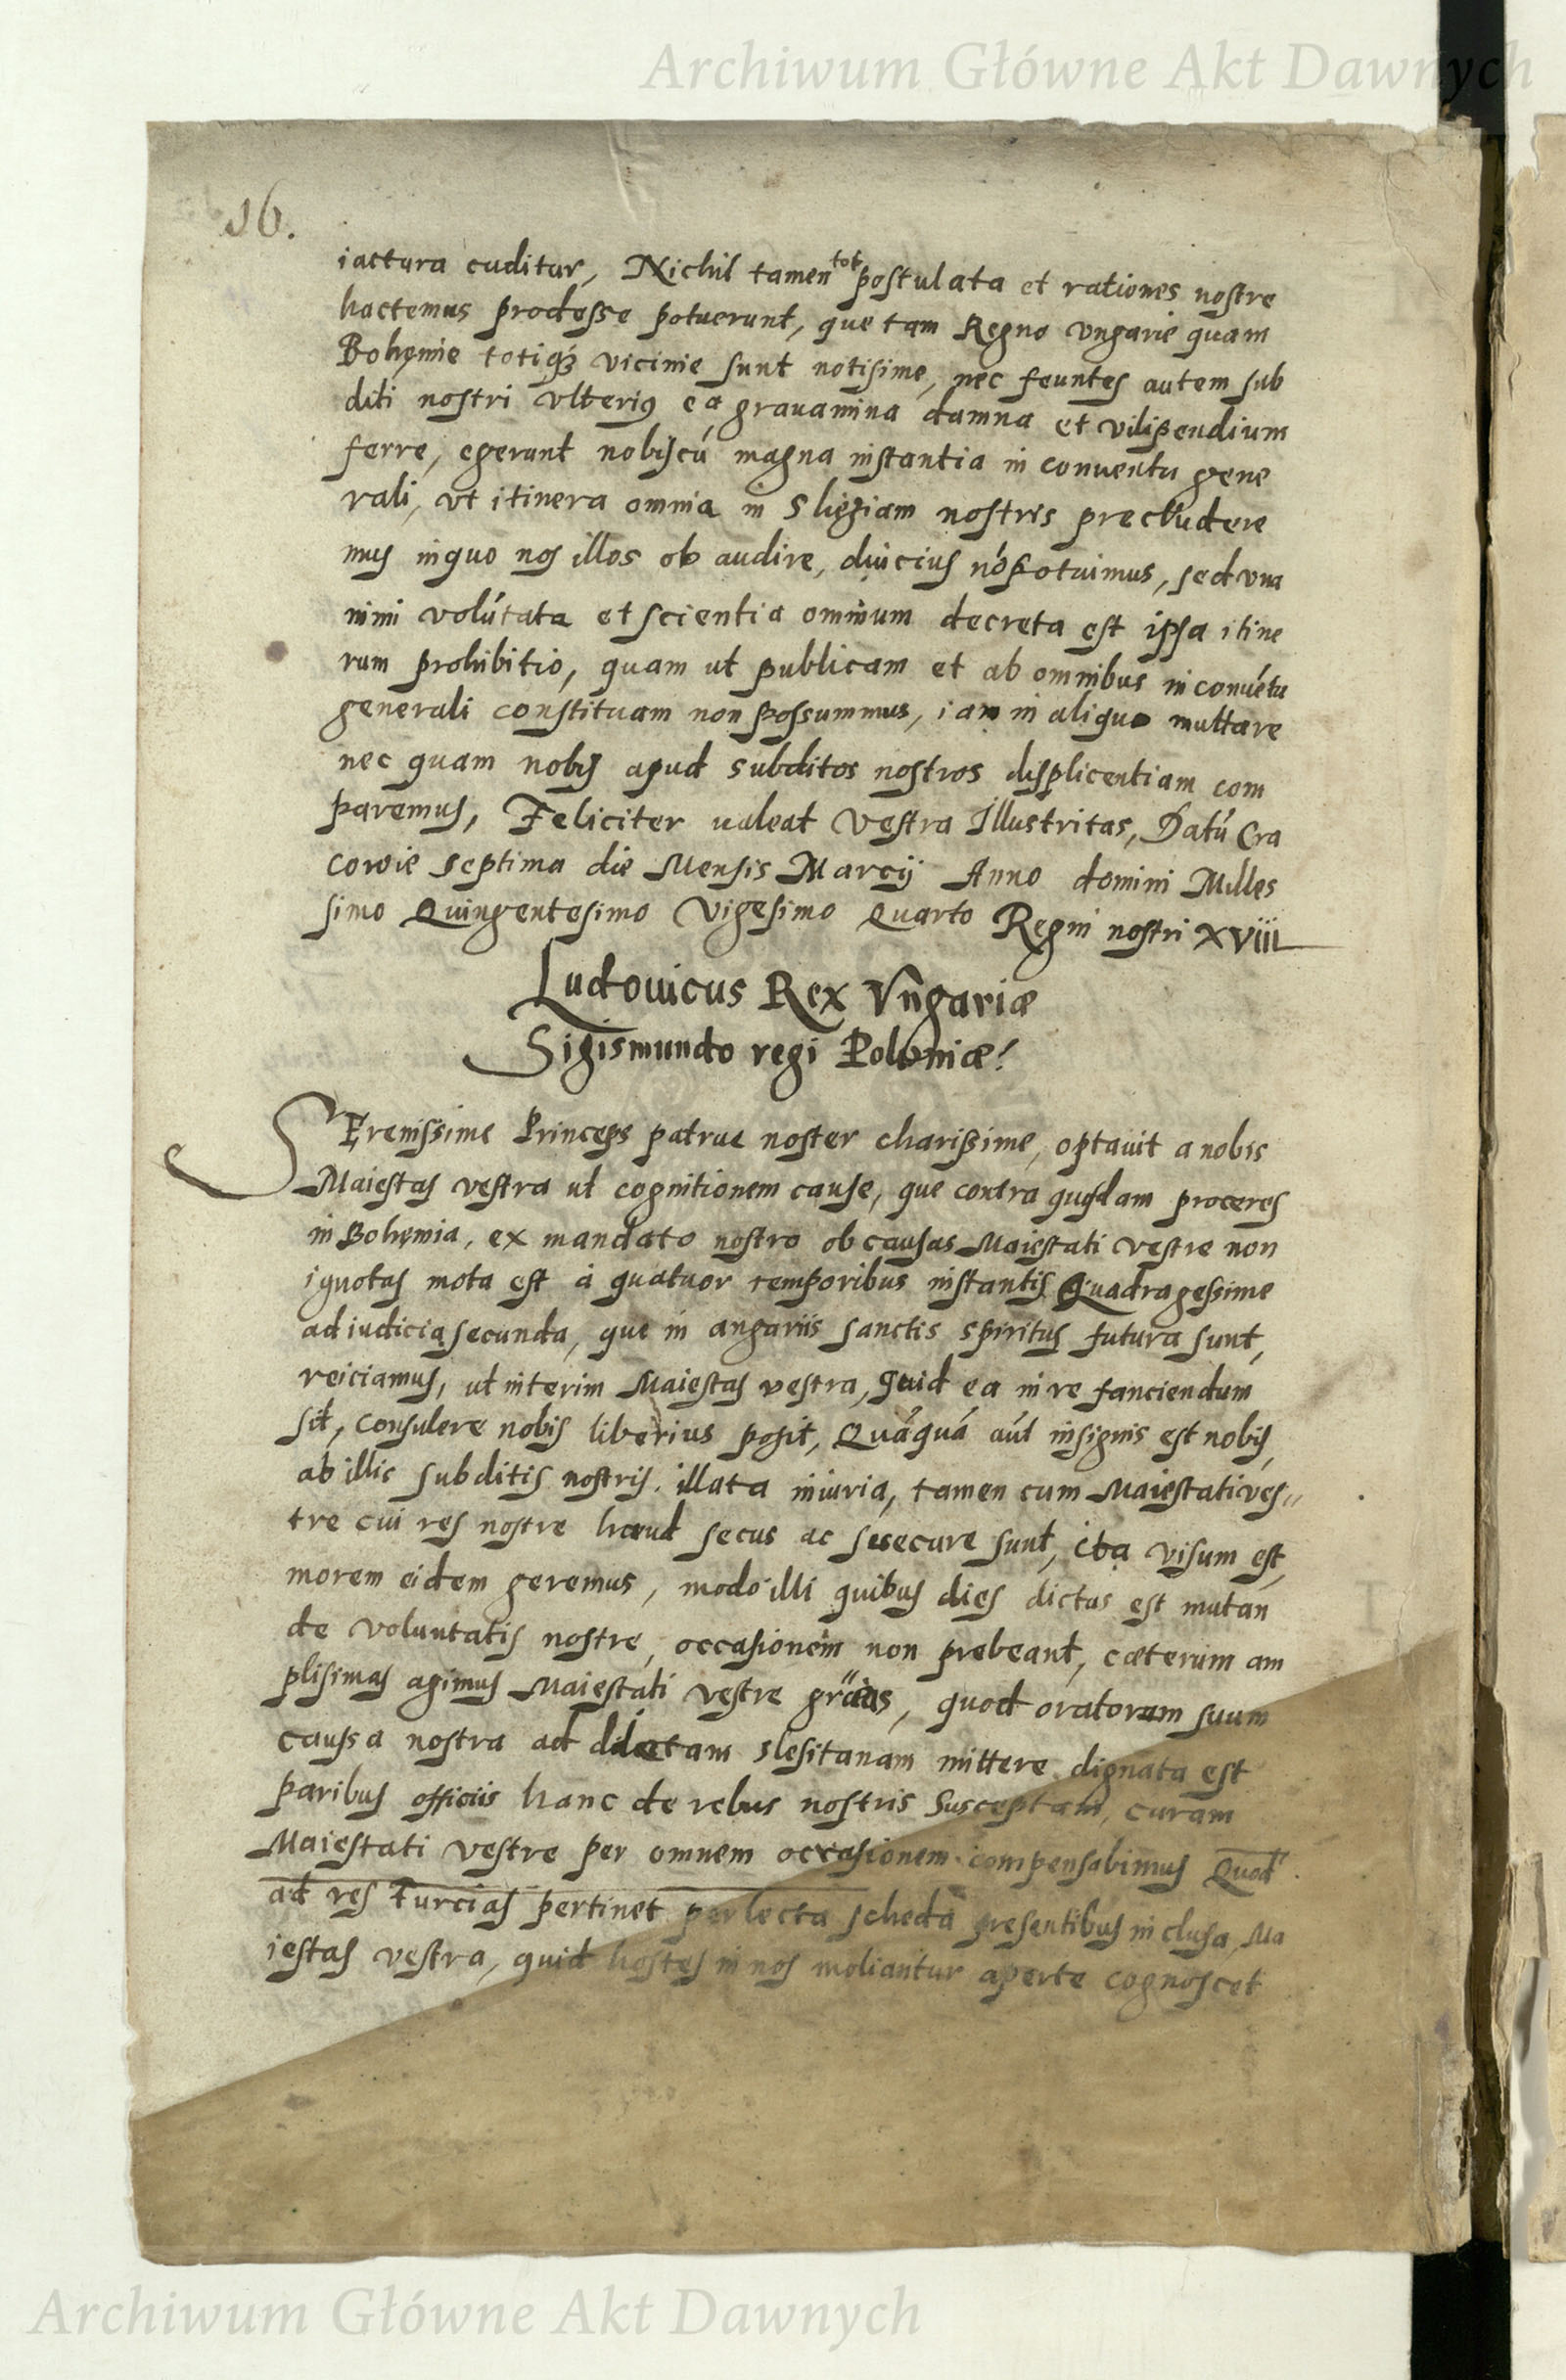 Archiwum Główne Akt Dawnych
16.
iactura cuditur, Nichil tamen tot postulata et rationes nostre
hactemus prodesse potuerunt, que tam Regno vngarie quam
Bohęmie totiqꝫ vicinie sunt notisime, nec feuntes autem sub
diti nostri vlteriꝰ ea grauamina damna et vilipendium
ferre, egerunt nobiscú magna instantia in conuentu gene
rali, vt itinera omnia in Slesiam nostris precludere
mus inquo nos illos ob audire, diucius nó potuimus, sed vna
nimi volútata et scientia omnium decreta est ipsa itine
rum prohibitio, quam ut publicam et ab omnibus in conuétu
generali constituam non possummus, iam in aliquo multare
nec quam nobis apud subditos nostros displicentiam com
paremus, Feliciter ualeat Vestra Illustritas, Datú Cra
cowie septima die Mensis Marcij Anno domini Milles
simo Quingentesimo Vigesimo Quarto Regni nostri XViii
Ludouicus Rex Vngariæ
Sigismundo regi Poloniæ!
SErenissime Princeps patrue noster charissime, optauit a nobis
Maiestas vestra ut cognitionem cause, que contra quosdam proceres
in Bohęmia, ex mandato nostro ob causas Maiestati vestre non
ignotas mota est á quatuor temporibus instantis Quadragessime
ad iudicia secunda, que in angariis sanctis spiritus futura sunt,
reiciamus, ut interim Maiestas vestra, quid ea in re fanciendum
sit, consulere nobis liberius posit, Quáquá aút insignis est nobis,
ab illis subditis nostris. illata iniuria, tamen cum Maiestati ves„
tre cui res nostre haud secus ac sue cure sunt, ita visum est,
morem eidem geremus, modo illi quibus dies dictus est mutan
de voluntatis nostre, occasionem non prebeant, cæterum am
plisimas agimus Maiestati vestre grãas, quod oratorem suum
caussa nostra ad dilectam slesitanam mittere dignata est
paribus officiis hanc de rebus nostris susceptam, curam
Maiestati vestre per omnem occasionem compensabimus Quod
ad res Turcias pertinet perlecta scheda presentibus in clusa, Ma
iestas vestra, quid hostes in nos moliantur aperte cognoscet
Archiwum Główne Akt Dawnych